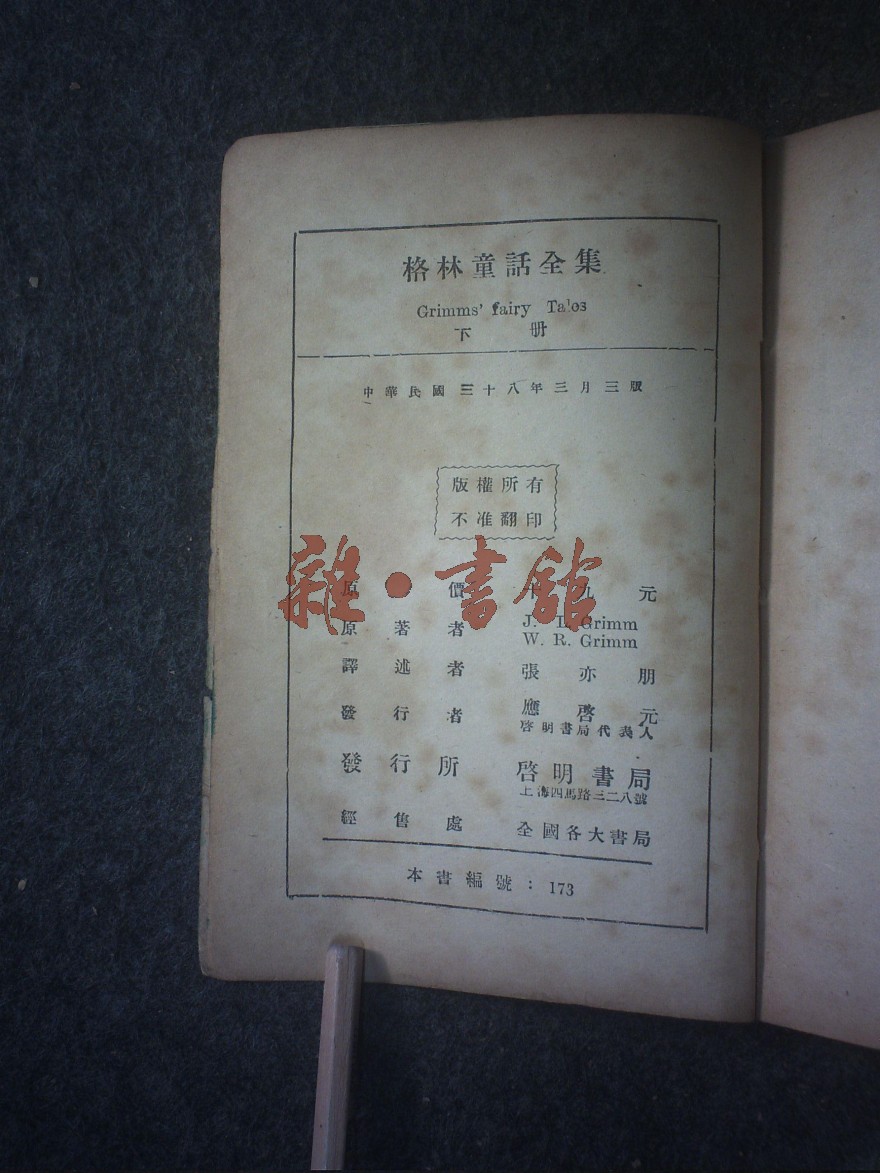 格林童話全集
Grimms' fairy Tales
下 册
中華民國三十八年三月三版
版權所有
不准翻印
雜·書館
原價 十九元
原著者 J. L. Grimm
W. R. Grimm
譯述者 張亦朋
發行者 應啓元
啓明書局代表人
發行所 啓明書局
上海四馬路三二八號
經售處 全國各大書局
本書編號：173